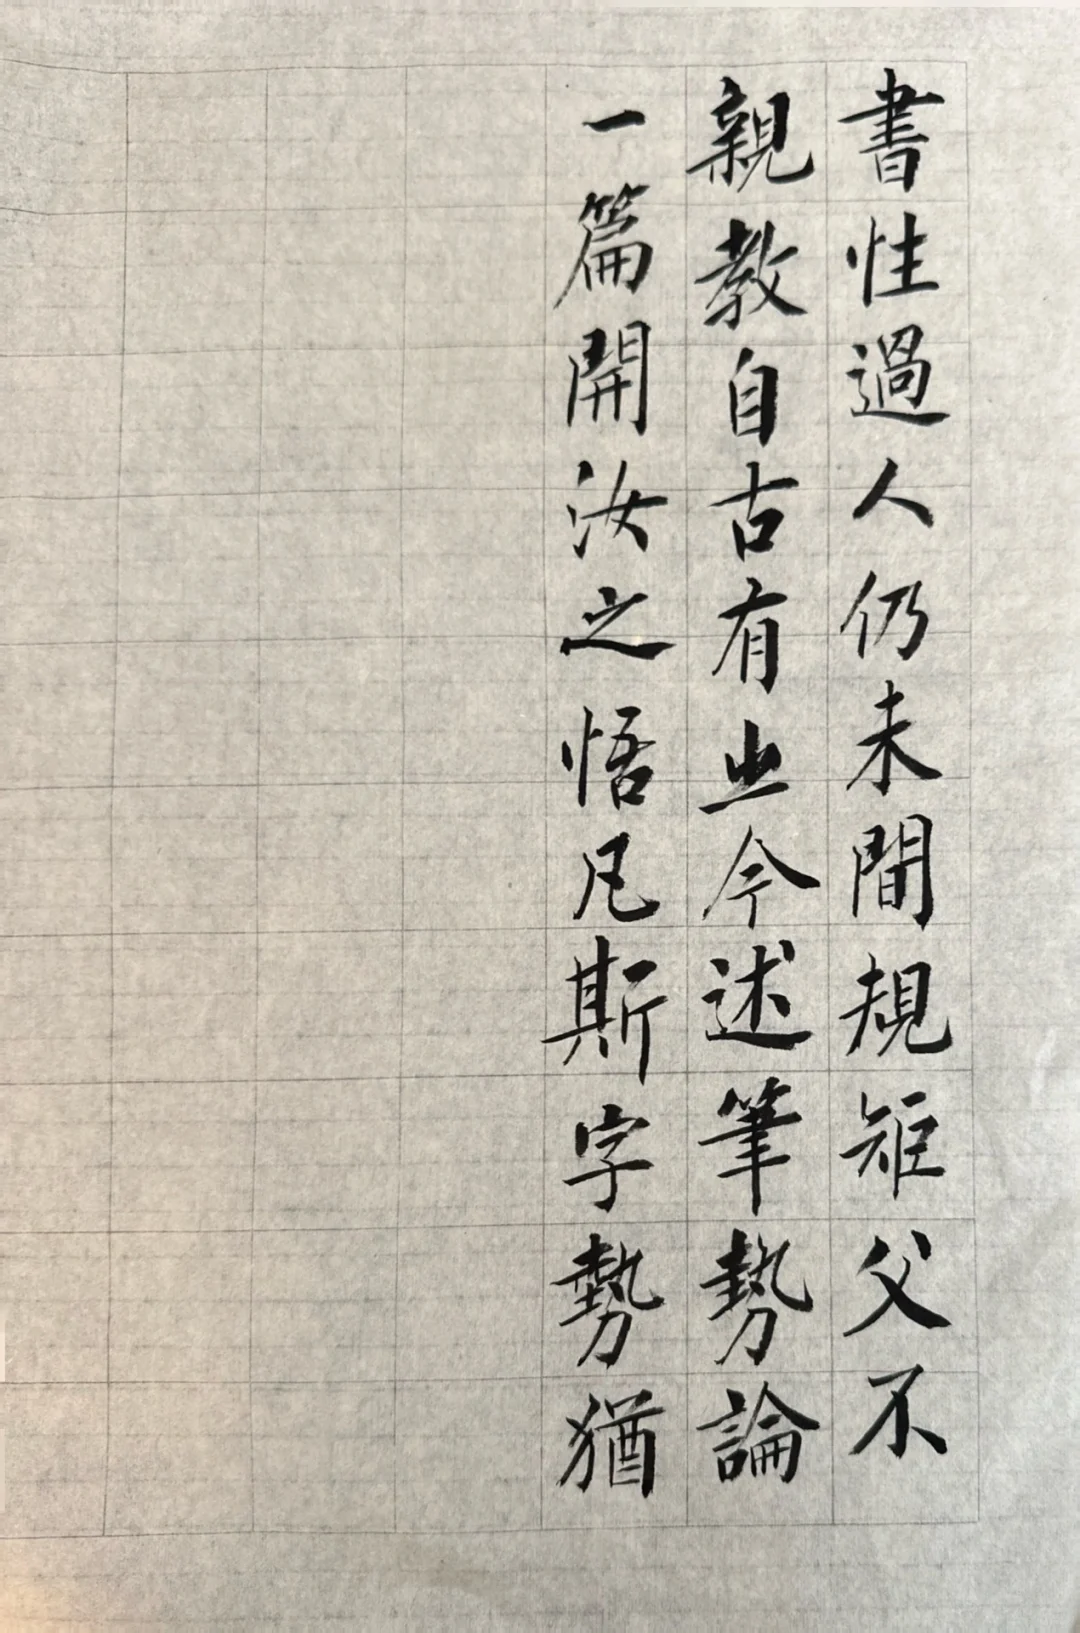 書性過人仍未間規矩父不
親教自古有之今述筆勢論
一篇開汝之悟凡斯字勢猶